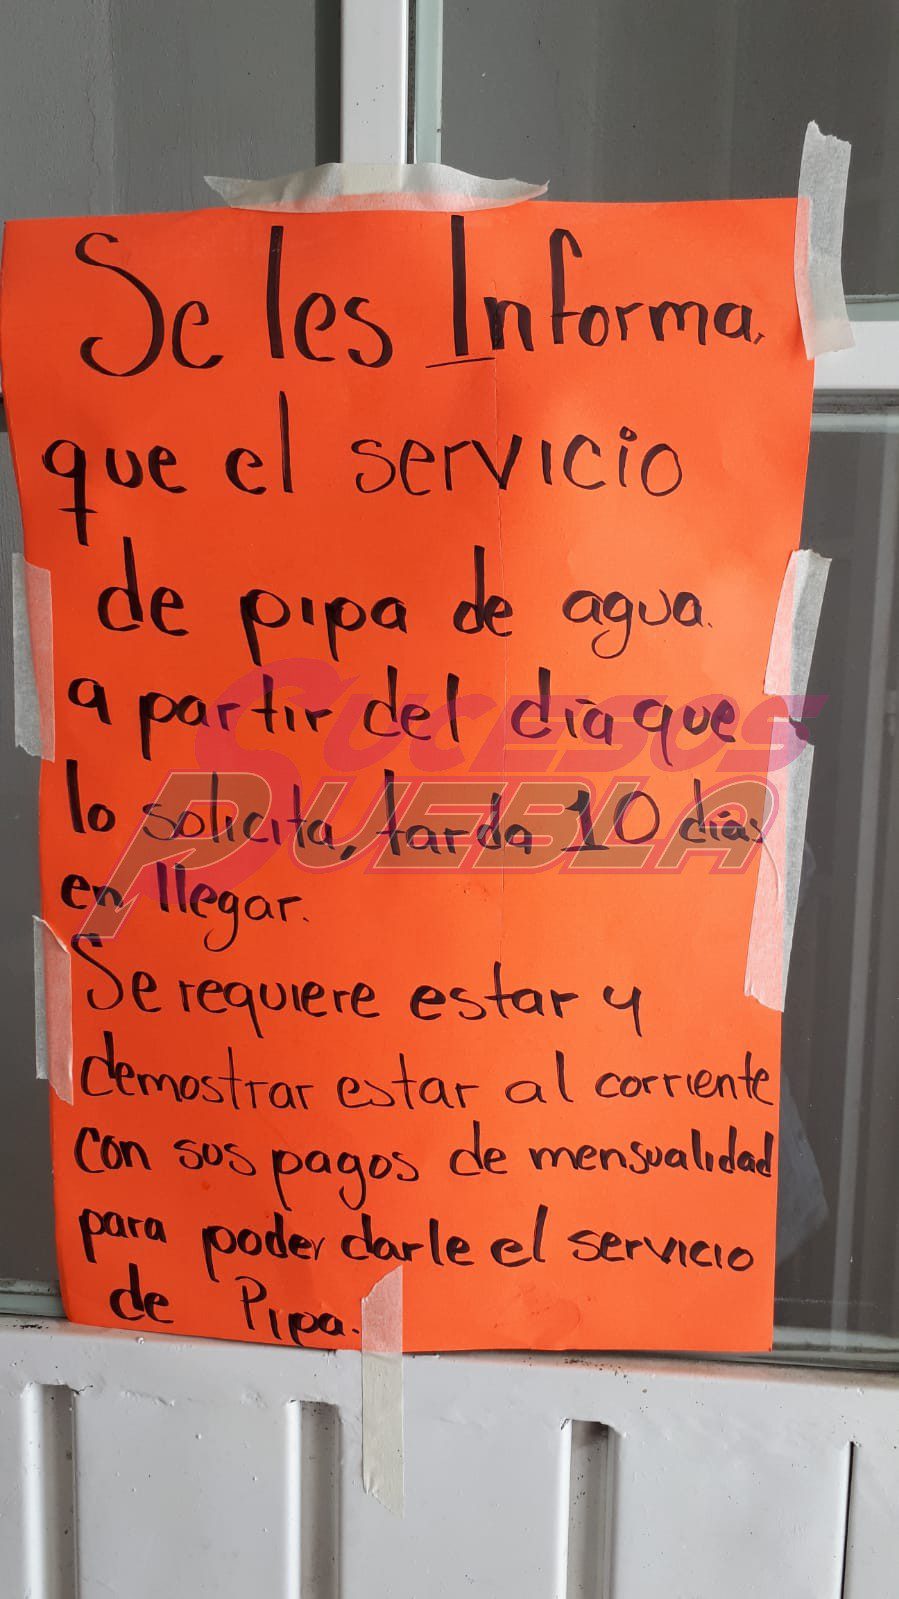 Se les Informa,
que el servicio
de pipa de agua.
a partir del día que
lo solicita, tarda 10 días
en llegar.
Se requiere estar y
demostrar estar al corriente
con sus pagos de mensualidad
para poder darle el servicio
de Pipa.
SUCESOS
PUEBLA